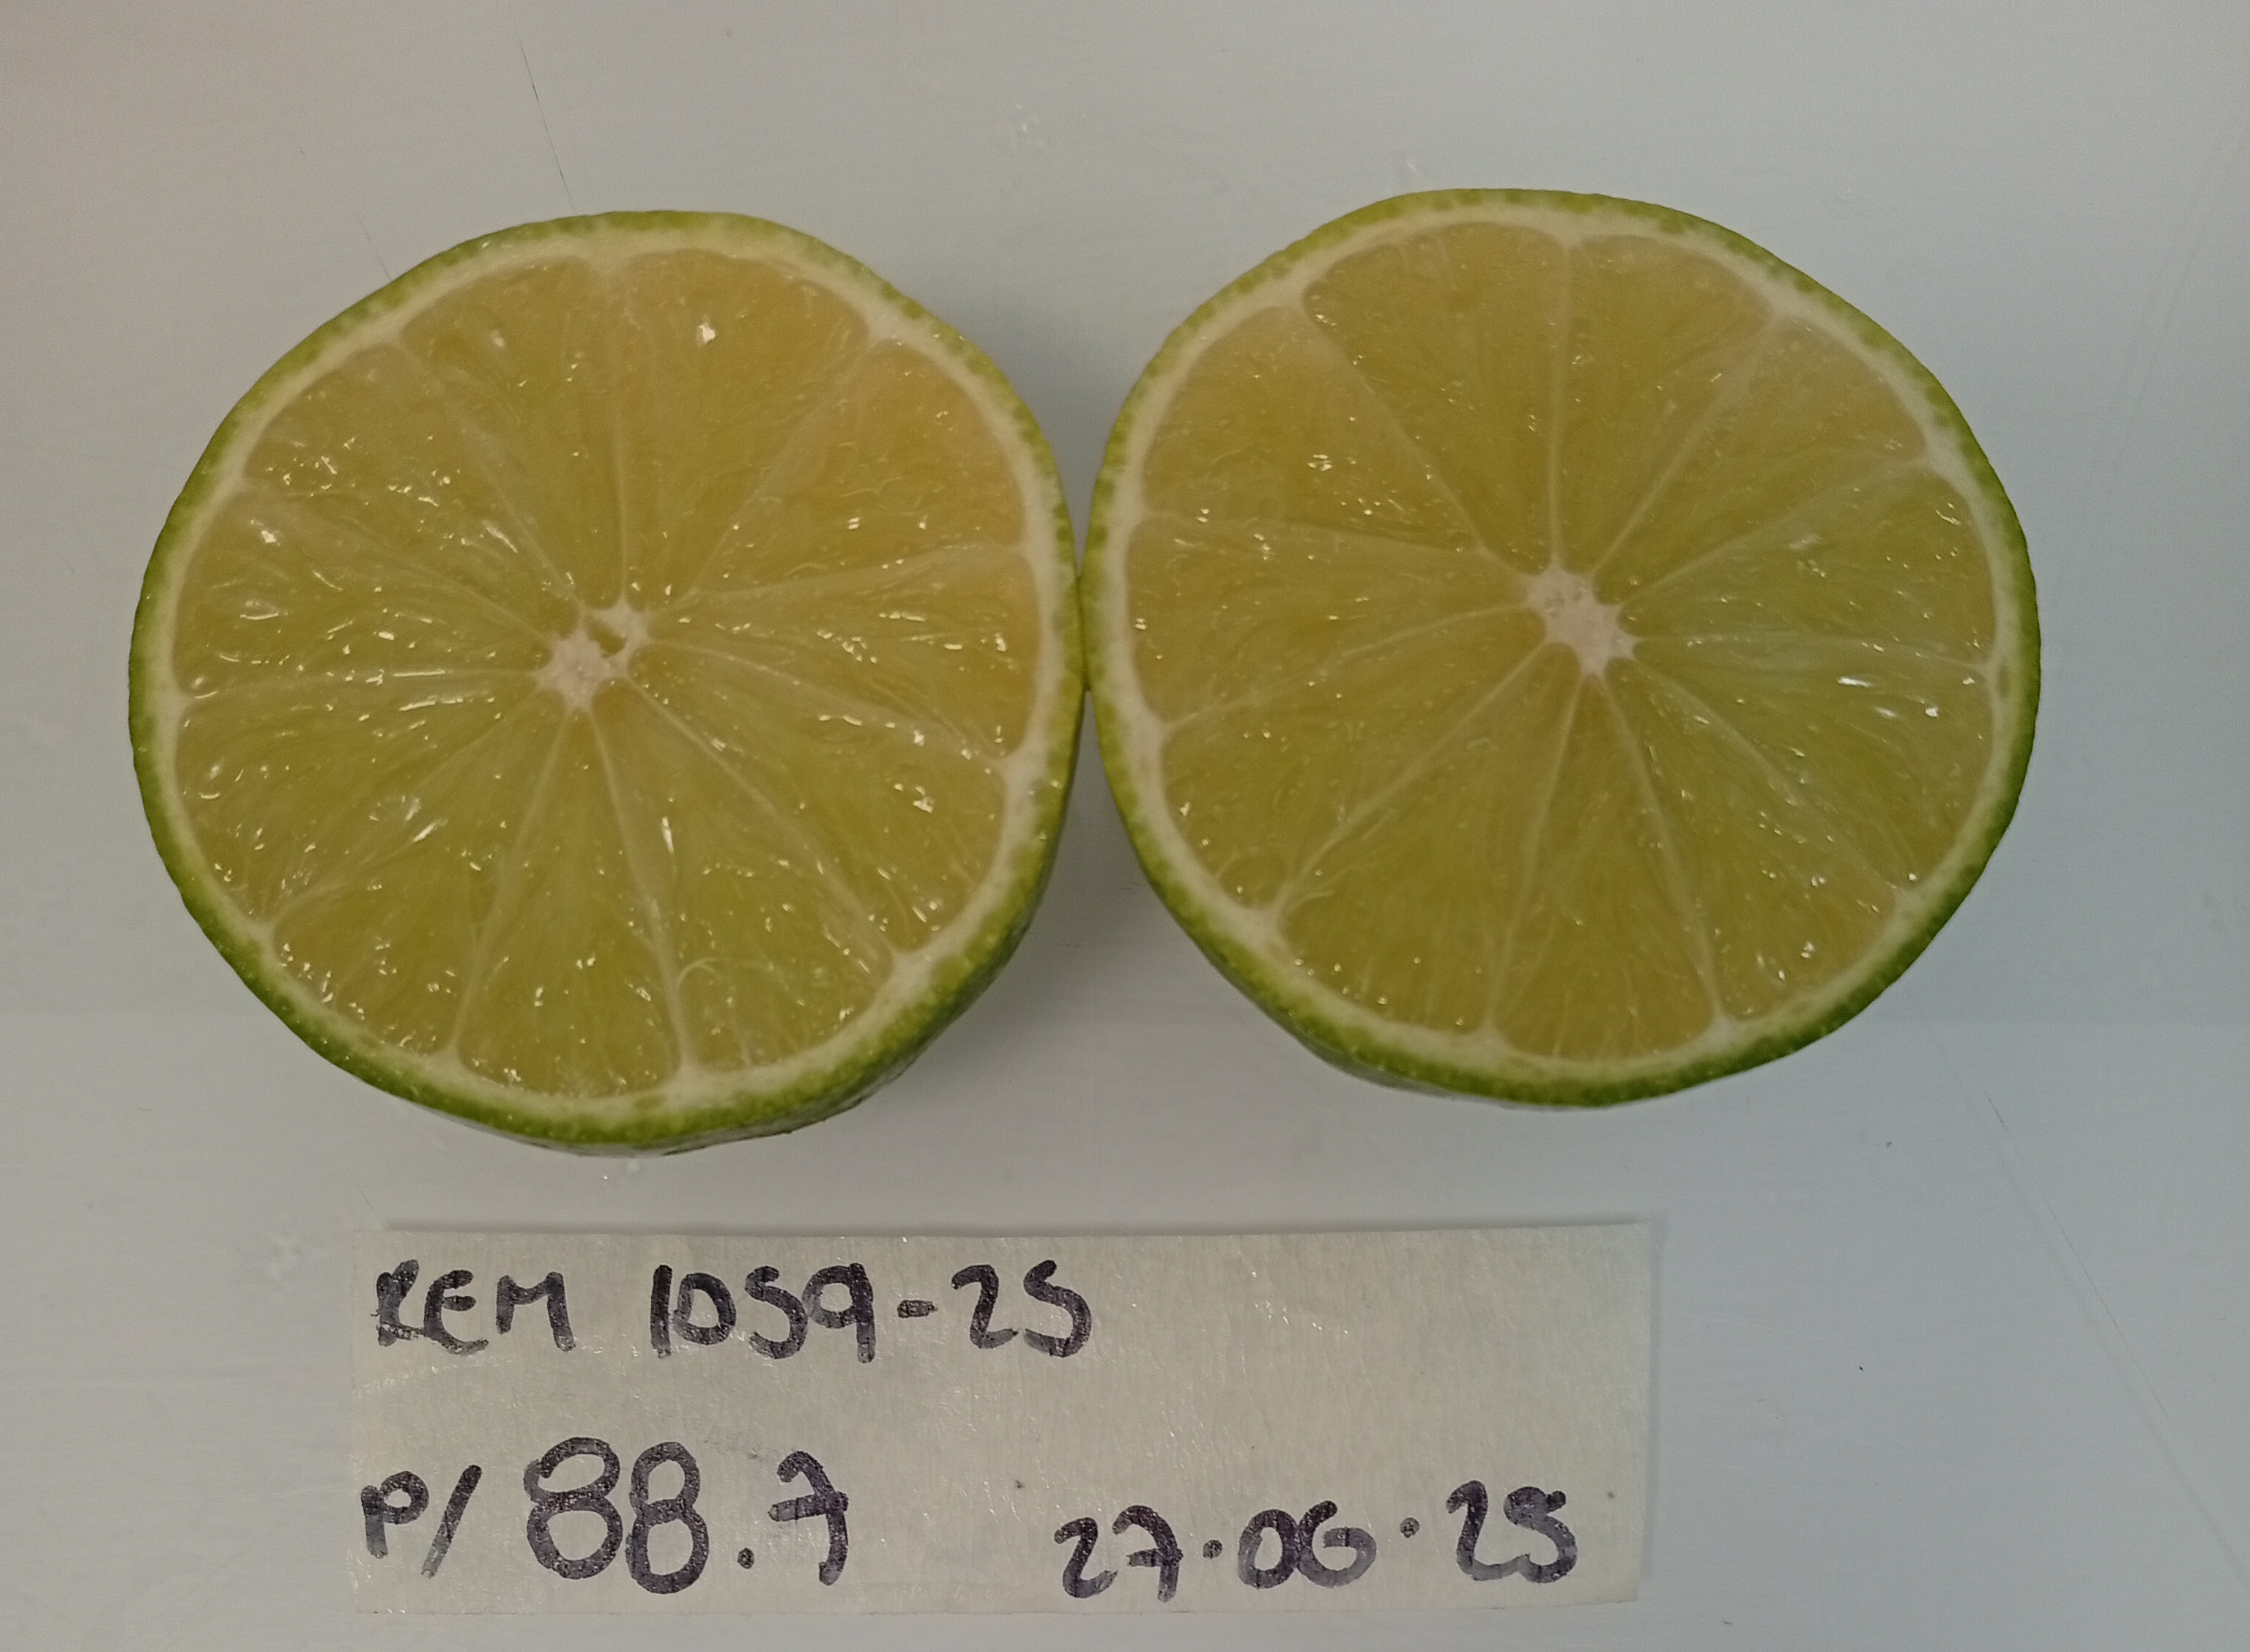 REM 1059-25
P/ 88.7 27.06.25